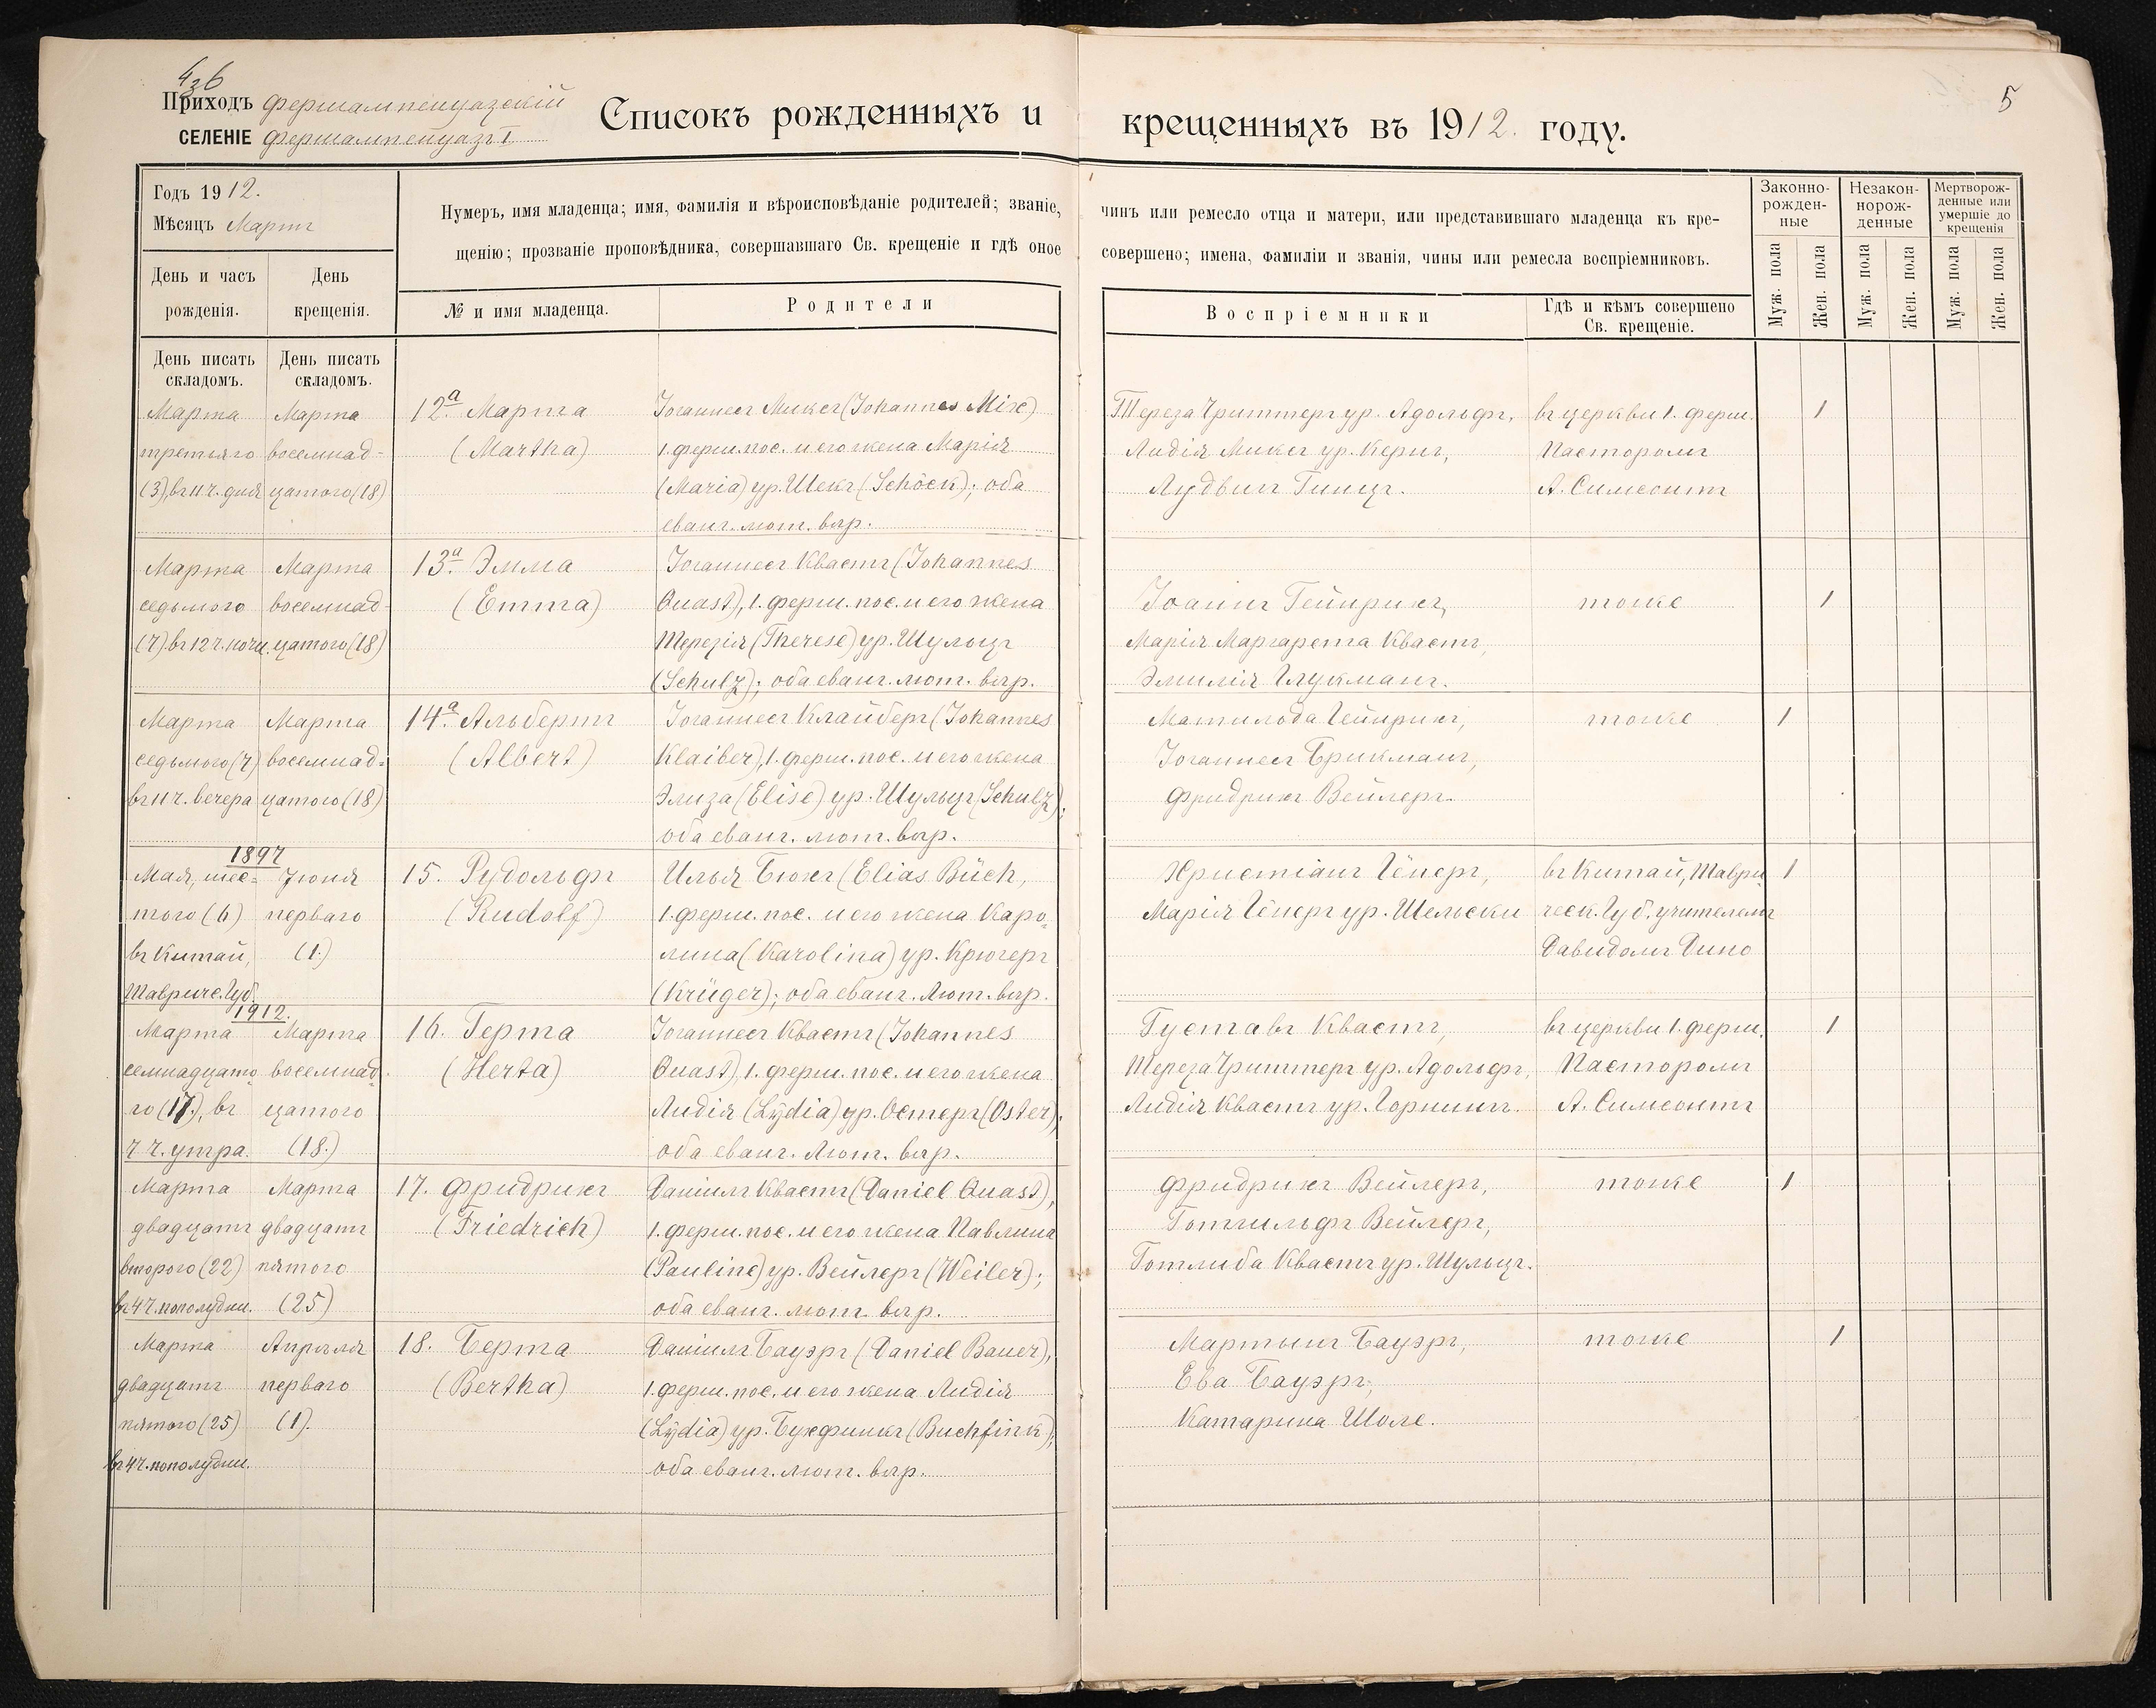 436
Приходъ Фершампенуазскій
СЕЛЕНІЕ Фершампенуазъ I
Списокъ рожденныхъ и крещенныхъ въ 1912. году.
5
Годъ 1912.
Мѣсяцъ Мартъ
Нумеръ, имя младенца; имя, фамилія и вѣроисповѣданіе родителей; званіе, чинъ или ремесло отца и матери, или представившаго младенца къ кре-
щенію; прозваніе проповѣдника, совершавшаго Св. крещеніе и гдѣ оное совершено; имена, фамиліи и званія, чины или ремесла воспріемниковъ.
Законно-
рожден-
ные
Незакон-
норож-
денные
Мертворож-
денные или
умершіе до
крещенія
Муж. пола
Жен. пола
Муж. пола
Жен. пола
Муж. пола
Жен. пола
День и часъ
рожденія.
День
крещенія.
№ и имя младенца.
Родители
Воспріемники
Гдѣ и кѣмъ совершено
Св. крещеніе.
День писать
складомъ.
День писать
складомъ.
Марта
третьяго
(3), въ 11 ч. дня
Марта
восемнад-
цатого (18)
12.а Марта
(Martha)
Іоганнесъ Миксъ (Johannes Mix)
1. ферш. пос. и его жена Марія
(Maria) ур. Шекъ (Schöck); оба
еванг. лют. вѣр.
Тереза Гриттеръ ур. Адольфъ,
Лидія Миксъ ур. Кернъ,
Лудвигъ Гинцъ.
въ церкви 1. ферш.
Пасторомъ
А. Симсонъ
1
Марта
седьмого
(7). въ 12 ч. ночи.
Марта
восемнад-
цатого (18)
13.а Эмма
(Emma)
Іоганнесъ Квастъ (Johannes
Quast), 1. ферш. пос. и его жена
Терезія (Therese) ур. Шульцъ
(Schulz); оба еванг. лют. вѣр.
Іоганнъ Гейнрихъ,
Марія Маргарета Квастъ,
Эмилія Глукманъ.
тоже
1
Марта
седьмого (7)
въ 11 ч. вечера
Марта
восемнад-
цатого (18)
14.а Альбертъ
(Albert)
Іоганнесъ Клайберъ (Johannes
Klaiber), 1. ферш. пос. и его жена
Элиза (Elise) ур. Шульцъ (Schulz);
оба еванг. лют. вѣр.
Матильда Гейнрихъ,
Іоганнесъ Брикманъ,
Фридрихъ Вейлеръ.
тоже
1
1897
Мая, шес-
того (6)
въ Китай,
Таврич. Губ.
Іюня
перваго
(1.)
15. Рудольфъ
(Rudolf)
Илья Бюхъ (Elias Büch,
1. ферш. пос. и его жена Каро-
лина (Karolina) ур. Крюгеръ
(Krüger); оба еванг. Лют. вѣр.
Христіанъ Гёнеръ,
Марія Гёнеръ ур. Шельски
въ Китай, Таври-
ческ. Губ. учителемъ
Давидомъ Дино
1
1912.
Марта
семнадцато-
го (17.), въ
7 ч. утра.
Марта
восемнад-
цатого
(18.)
16. Герта
(Herta)
Іоганнесъ Квастъ (Johannes
Quast), 1. ферш. пос. и его жена
Лидія (Lÿdia) ур. Остеръ (Oster);
оба еванг. Лют. вѣр.
Густавъ Квастъ,
Тереза Гриттеръ ур. Адольфъ,
Лидія Квастъ ур. Горнингъ.
въ церкви 1. ферш.
Пасторомъ
А. Симсонъ
1
Марта
двадцать
второго (22)
въ 4 ч. пополудни.
Марта
двадцать
пятого
(25)
17. Фридрихъ
(Friedrich)
Даніилъ Квастъ (Daniel Quast),
1. ферш. пос. и его жена Павлина
(Pauline) ур. Вейлеръ (Weiler);
оба еванг. лют. вѣр.
Фридрихъ Вейлеръ,
Готгильфъ Вейлеръ,
Готлиба Квастъ ур. Шульцъ.
тоже
1
Марта
двадцать
пятого (25)
въ 4 ч. пополудни.
Апрѣля
перваго
(1).
18. Берта
(Bertha)
Даніилъ Бауэръ (Daniel Bauer),
1. ферш. пос. и его жена Лидія
(Lÿdia) ур. Бухфинкъ (Buchfink);
оба еванг. лют. вѣр.
Мартынъ Бауэръ,
Ева Бауэръ,
Катарина Шоле.
тоже
1